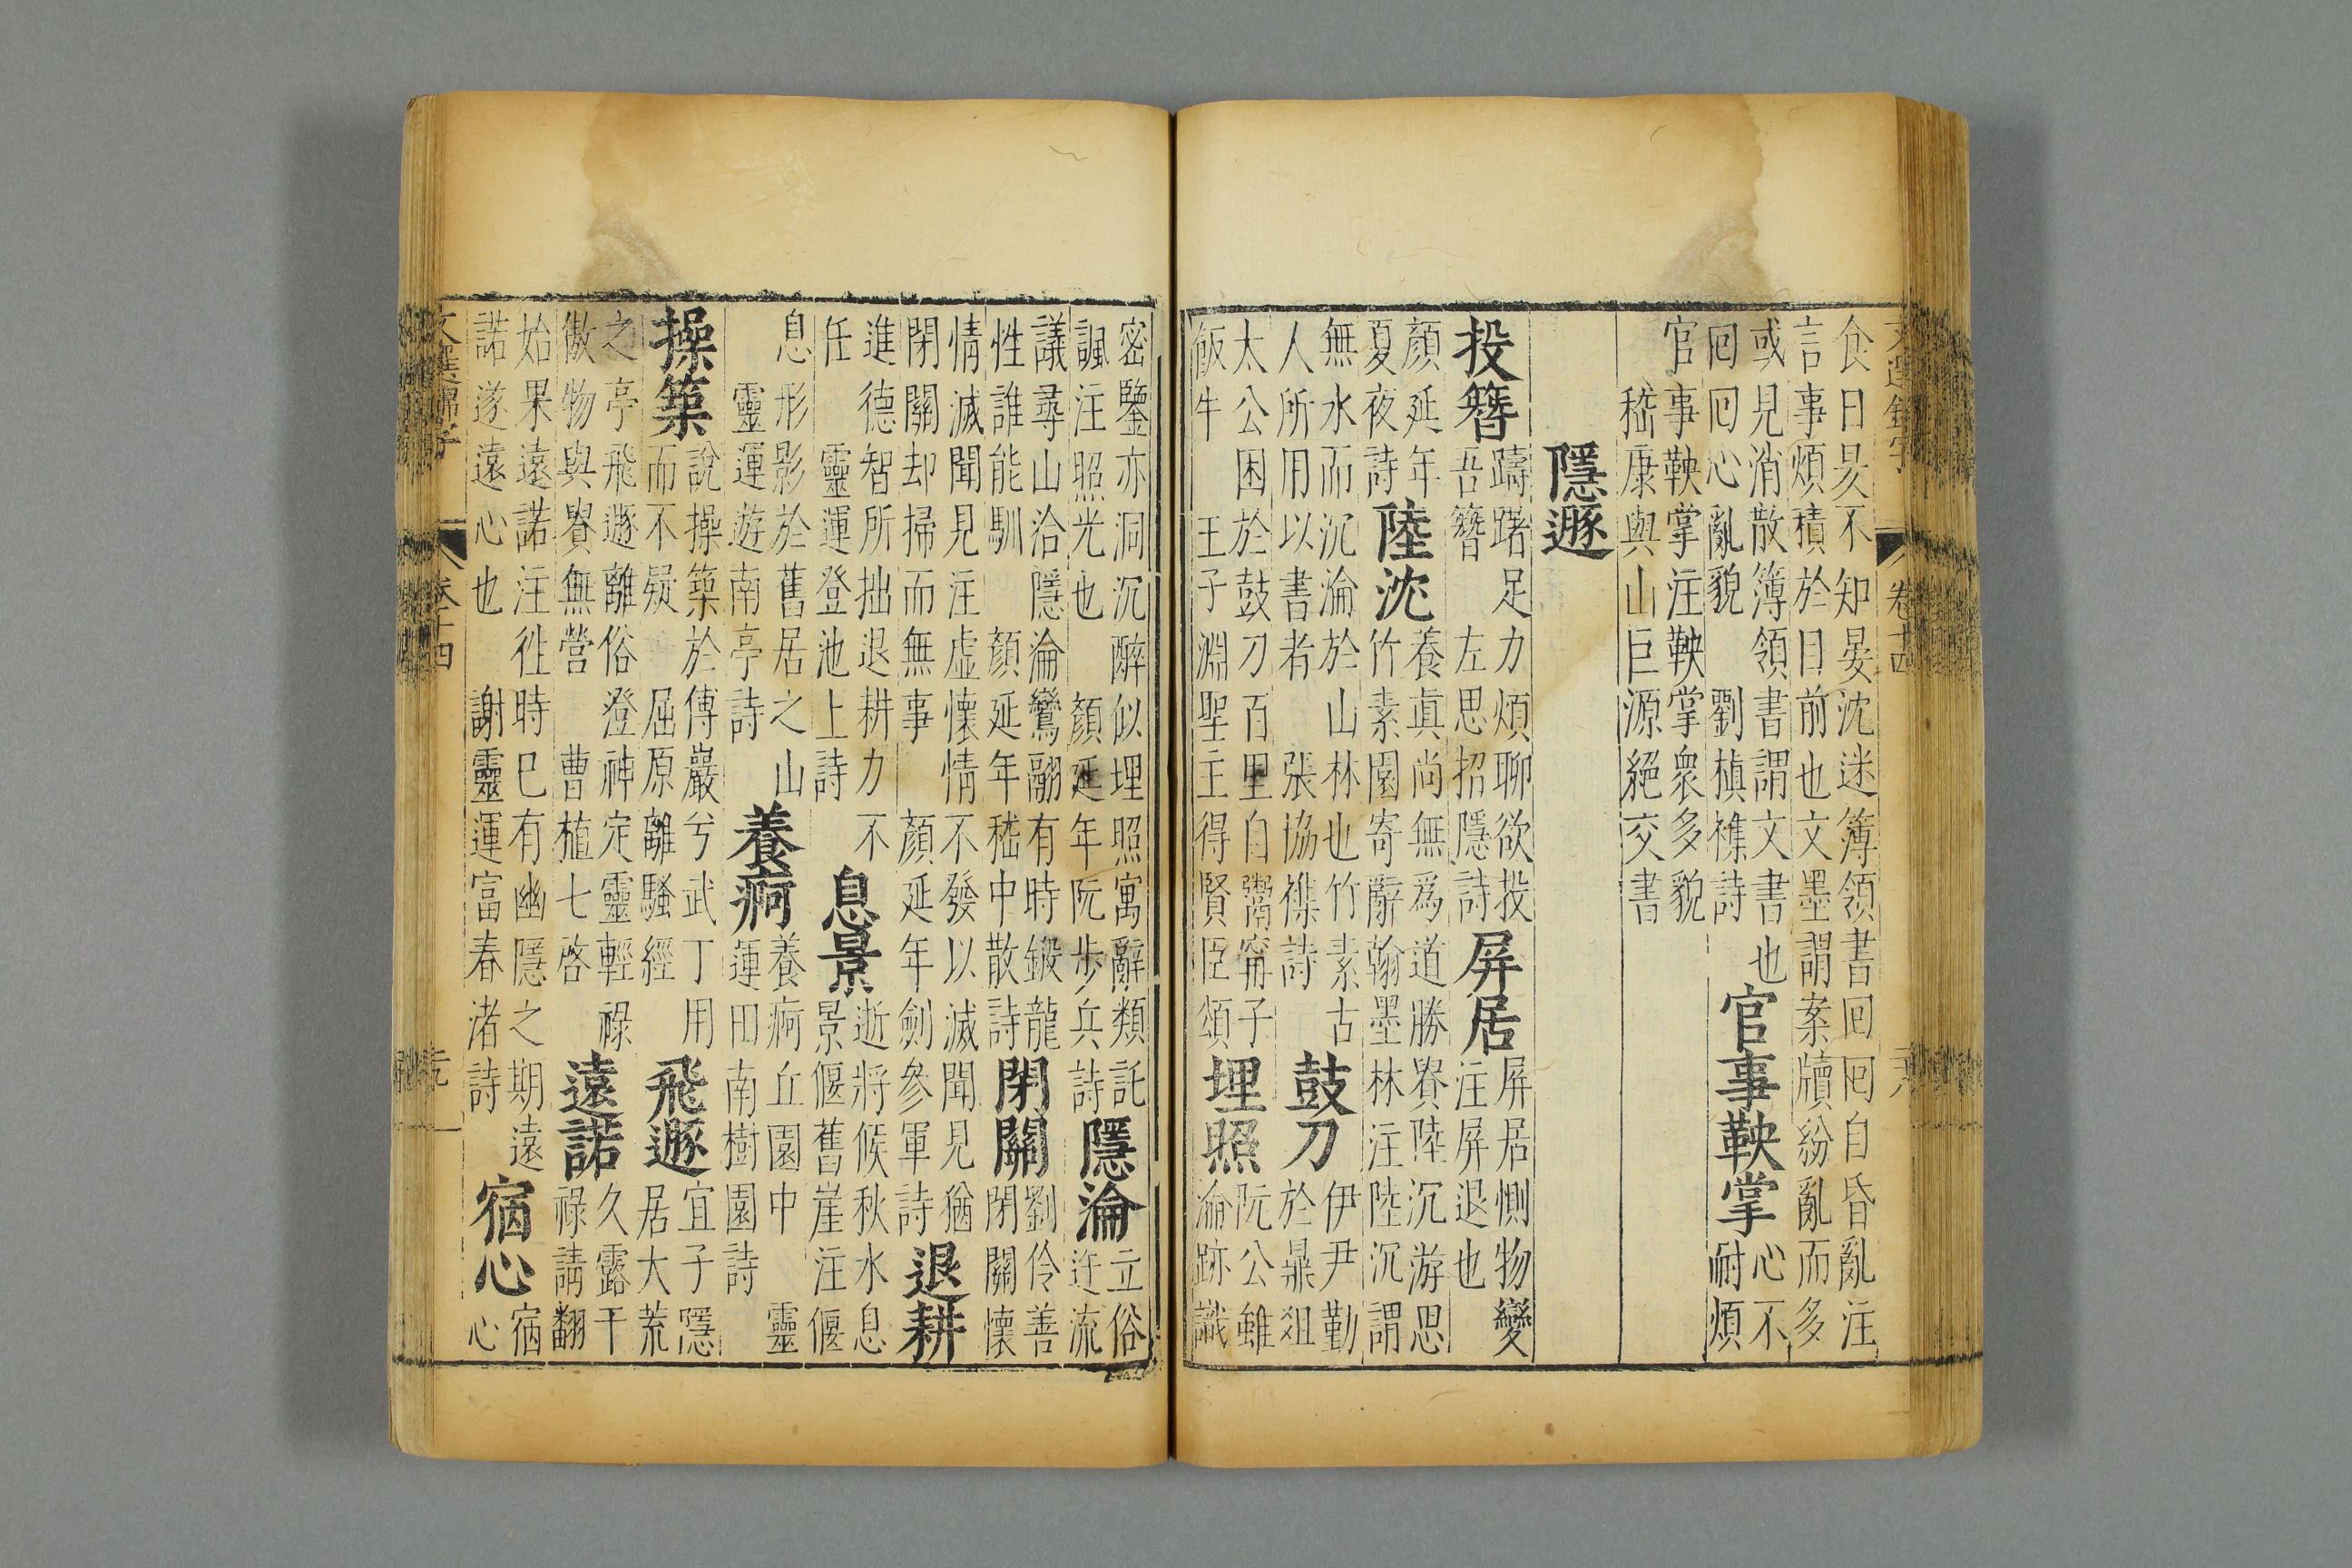 文選錦字 卷十四 六
食日昃不知晏沈迷簿領書回回自昏亂注
言事煩積於目前也文墨謂案牘紛亂而多
或見消散簿領書謂文書也
回回心亂貌 劉楨襍詩
官事鞅掌
心不
耐煩
官事鞅掌注鞅掌衆多貌
嵇康與山巨源絕交書
隱遯
投簪
躊躇足力煩聊欲投
吾簪 左思招隱詩
屏居
屏居惻物變
注屏居退也
顏延年
夏夜詩
陸沈
養眞尚無爲道勝賚陸沉游思
竹素園寄辭翰墨林注陸沉謂
無水而沉淪於山林也竹素古
人所用以書者 張協襍詩
鼓刀
伊尹勤
於鼎俎
太公困於鼓刀百里自鬻甯子
飯牛 王子淵聖主得賢臣頌
埋照
阮公雖
淪跡識
密鑒亦洞沉醉似埋照寓辭類託
諷注照光也 顏延年阮步兵詩
隱淪
立俗
迕流
議尋山洽隱淪鸞翮有時鍛龍
性誰能馴 顏延年嵇中散詩
閉關
劉伶善
閉關懷
情滅聞見注虛懷情不發以滅聞見猶
閉關却掃而無事 顏延年劍參軍詩
退耕
進德智所拙退耕力不
任 靈運登池上詩
息景
逝將候秋水息
景偃舊崖注偃
息形影於舊居之山
靈運遊南亭詩
養痾
養痾丘園中 靈
運田南樹園詩
操築
說操築於傅巖兮武丁用
而不疑 屈原離騷經
飛遯
宜子隱
居大荒
之亭飛遯離俗澄神定靈輕祿
傲物與賚無營 曹植七啓
遠諾
久露干
祿請翻
始果遠諾注徃時已有幽隱之期遠
諾遂遠心也 謝靈運富春渚詩
宿心
宿
心
文選錦字 卷十四